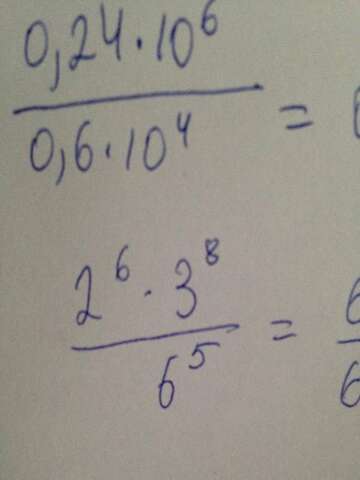 0,24·10⁶
0,6·10⁴ =
2⁶·3⁸
6⁵ =